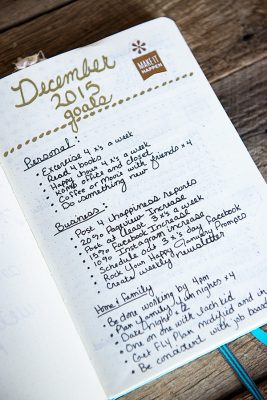 December
2015
goals
MAKE IT
HAPPEN
Personal:
• Exercise 4 x's a week
• Read 4 books
• Happy hour 4 x's a week
• Komb office and closet
• Coffee or Movie with friends x4
• Do something new
Business:
• Post 4 happiness reports
• 20% Pageview Increase
• Peek at Least 3 x's a week
• 15% Facebook Increase
• 10% Instagram increase
• Schedule out 3 x's day Facebook
• Rock Your Happy Planner Promos
• Create weekly newsletter
Home & Family
• Be done working by 4pm
• Plan 4 family fun nights x4
• Date Nights x2
• One on one with each kid
• Get FLY Plan modified and in
• Be consistent with job board